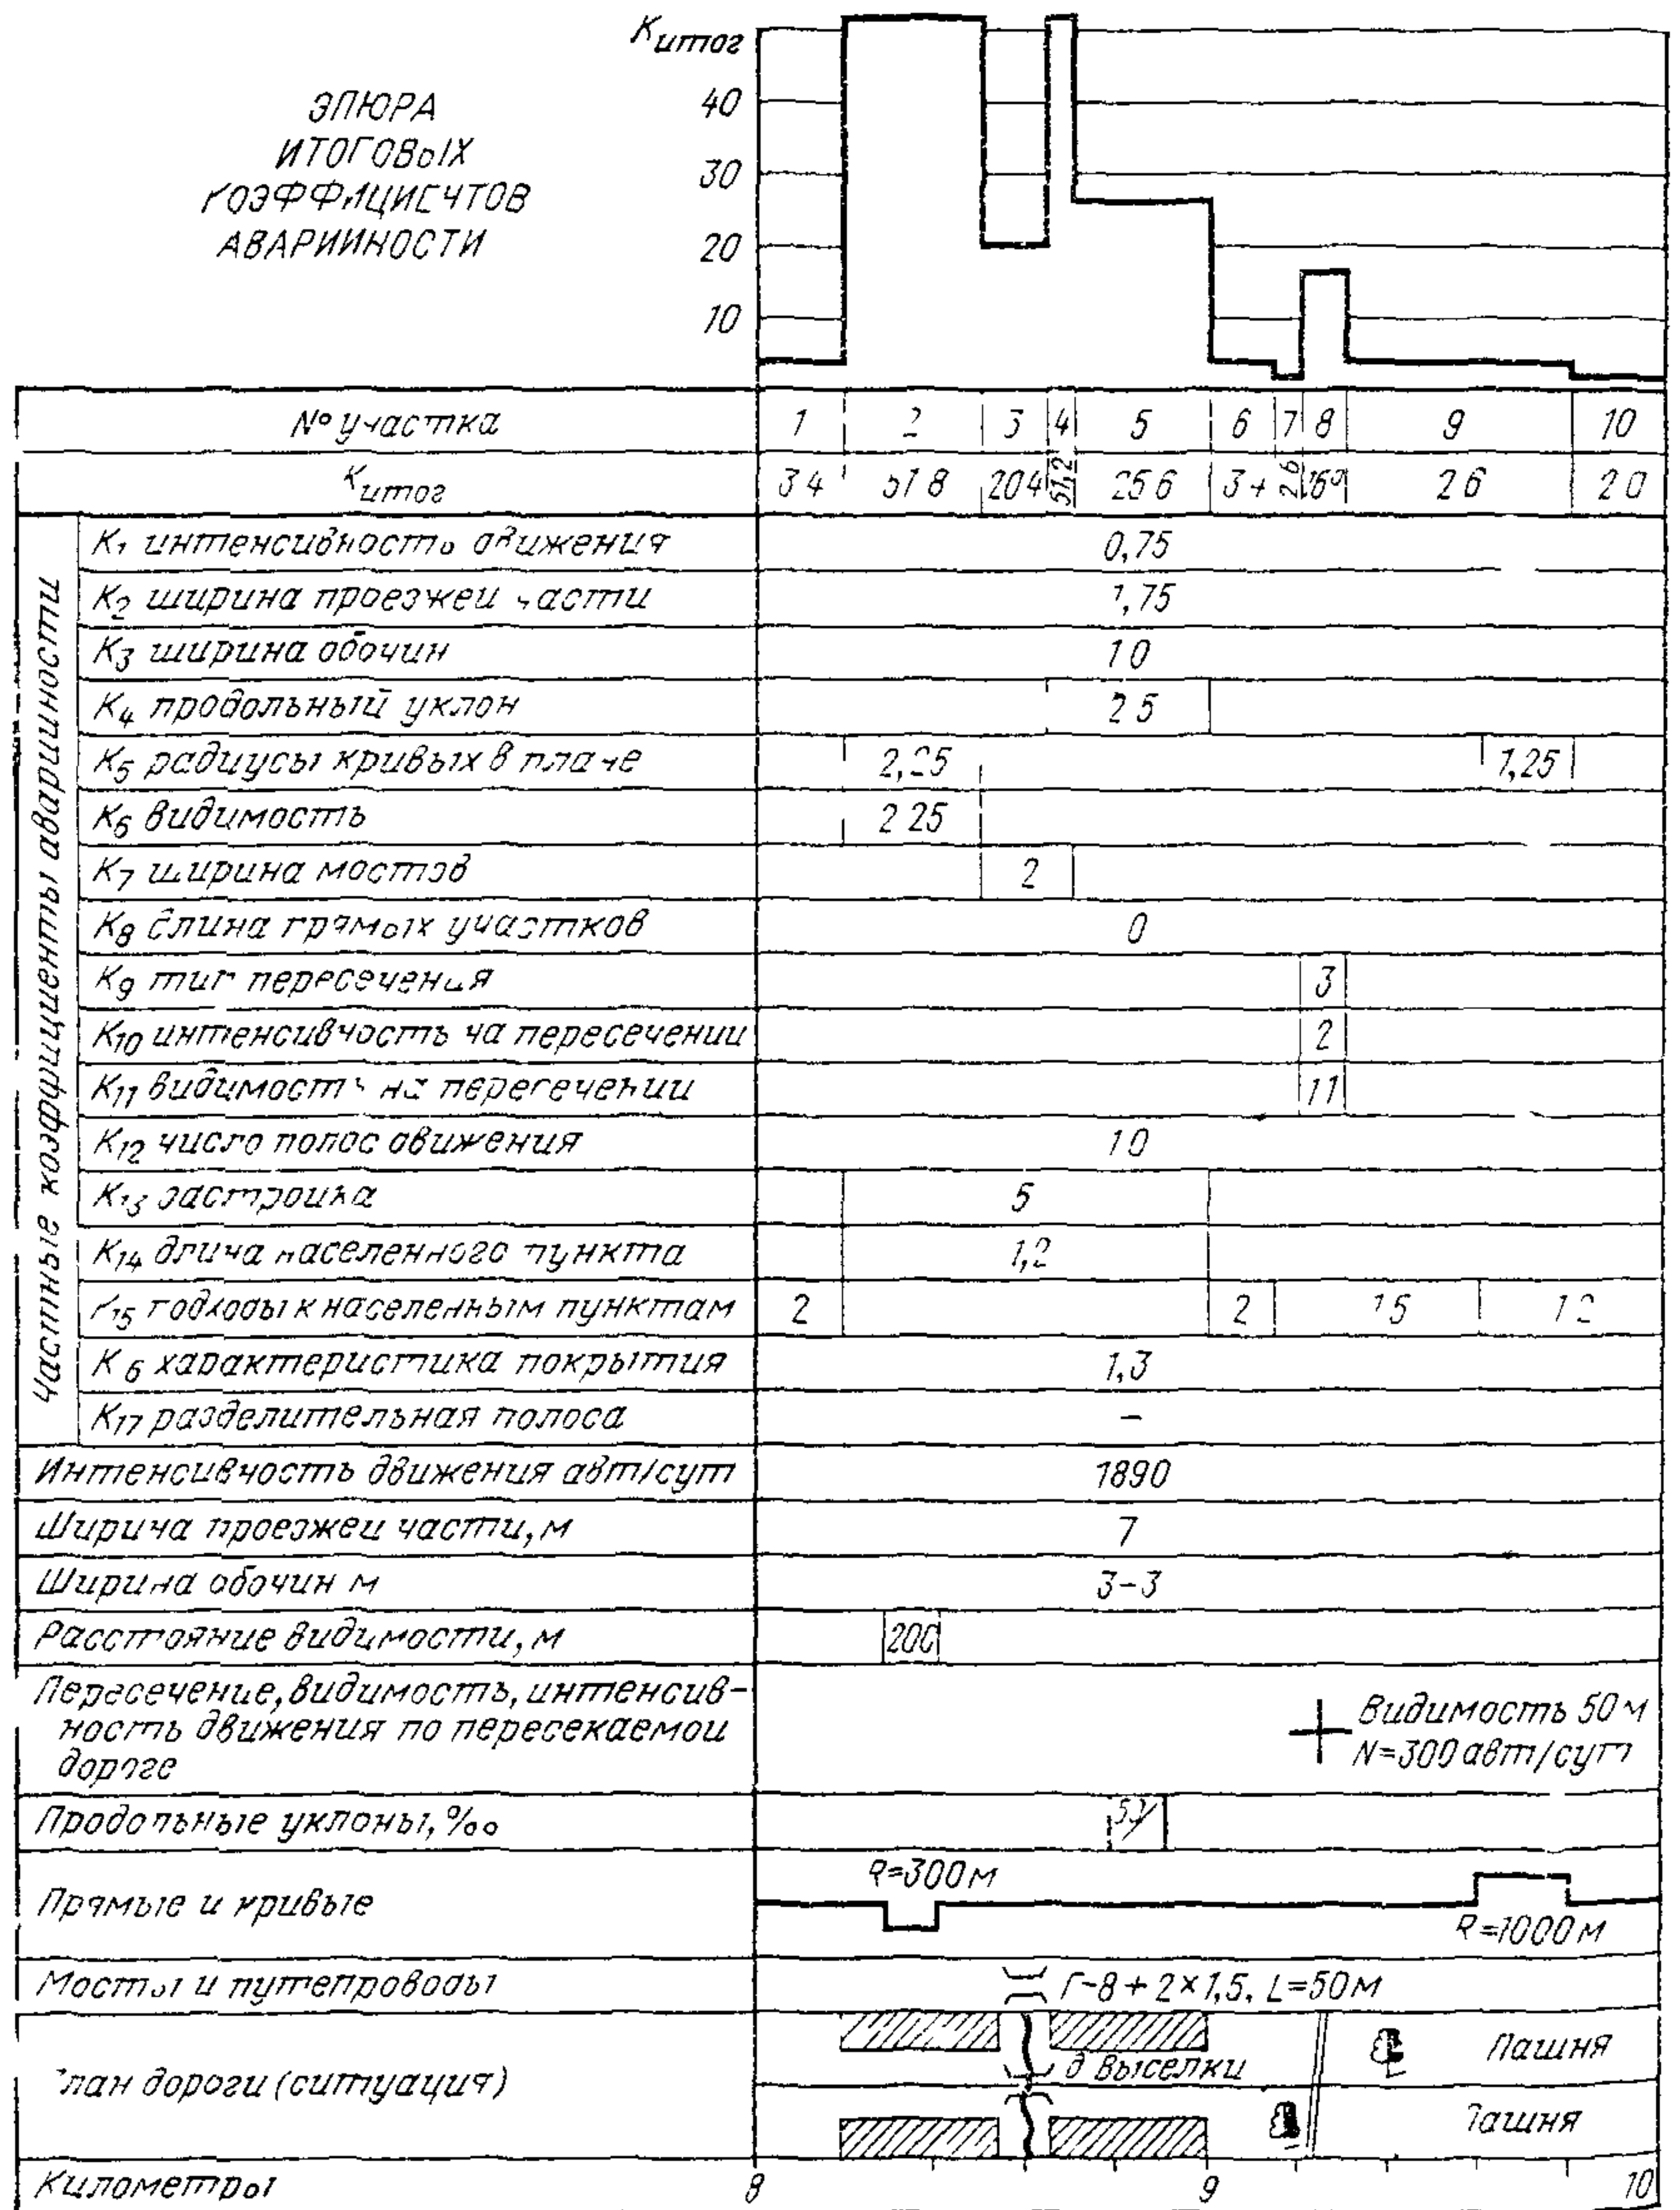 Kитог
ЭПЮРА
ИТОГОВЫХ
КОЭФФИЦИЕНТОВ
АВАРИЙНОСТИ
40
30
20
10
№ участка 1 2 3 4 5 6 7 8 9 10
Kитог 3 4 51 8 20 4 51,2 25 6 3 4 2 6 2 6 2 0
K1 интенсивность движения 0,75
K2 ширина проезжей части 1,75
K3 ширина обочин 1 0
K4 продольный уклон 2 5
K5 радиусы кривых в плане 2,25 1,25
K6 видимость 2 25
K7 ширина мостов 2
K8 длина прямых участков 0
K9 тип пересечения 3
K10 интенсивность на пересечении 2
K11 видимость на пересечении 1 1
K12 число полос движения 1 0
K13 застройка 5
K14 длина населенного пункта 1,2
K15 подходы к населенным пунктам 2 2 1 5 1 2
K 6 характеристика покрытия 1,3
K17 разделительная полоса –
Частные коэффициенты аварийности
Интенсивность движения авт/сут 1890
Ширина проезжей части, м 7
Ширина обочин м 3-3
Расстояние видимости, м 200
Пересечение, видимость, интенсив-
ность движения по пересекаемой
дороге
Видимость 50 м
N=300 авт/сут
Продольные уклоны, ‰
Прямые и кривые R=300 м R=1000 м
Мосты и путепроводы Г-8 + 2×1,5, L=50 м
План дороги (ситуация) д Выселки Пашня
Пашня
Километры 8 9 10